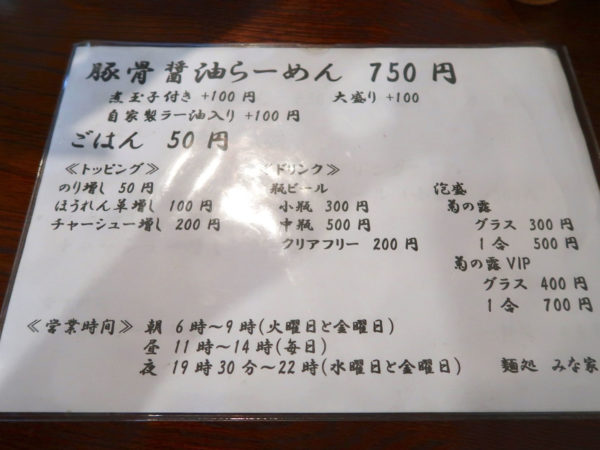 豚骨醤油らーめん 750円
煮玉子付き +100円 大盛り +100
自家製ラー油入り +100円
ごはん 50円
≪トッピング≫
のり増し 50円
ほうれん草増し 100円
チャーシュー増し 200円
≪ドリンク≫
瓶ビール
小瓶 300円
中瓶 500円
クリアフリー 200円
泡盛
菊の露
グラス 300円
1合 500円
菊の露VIP
グラス 400円
1合 700円
≪営業時間≫ 朝 6時～9時(火曜日と金曜日)
昼 11時～14時(毎日)
夜 19時30分～22時(水曜日と金曜日)
麺処 みな家